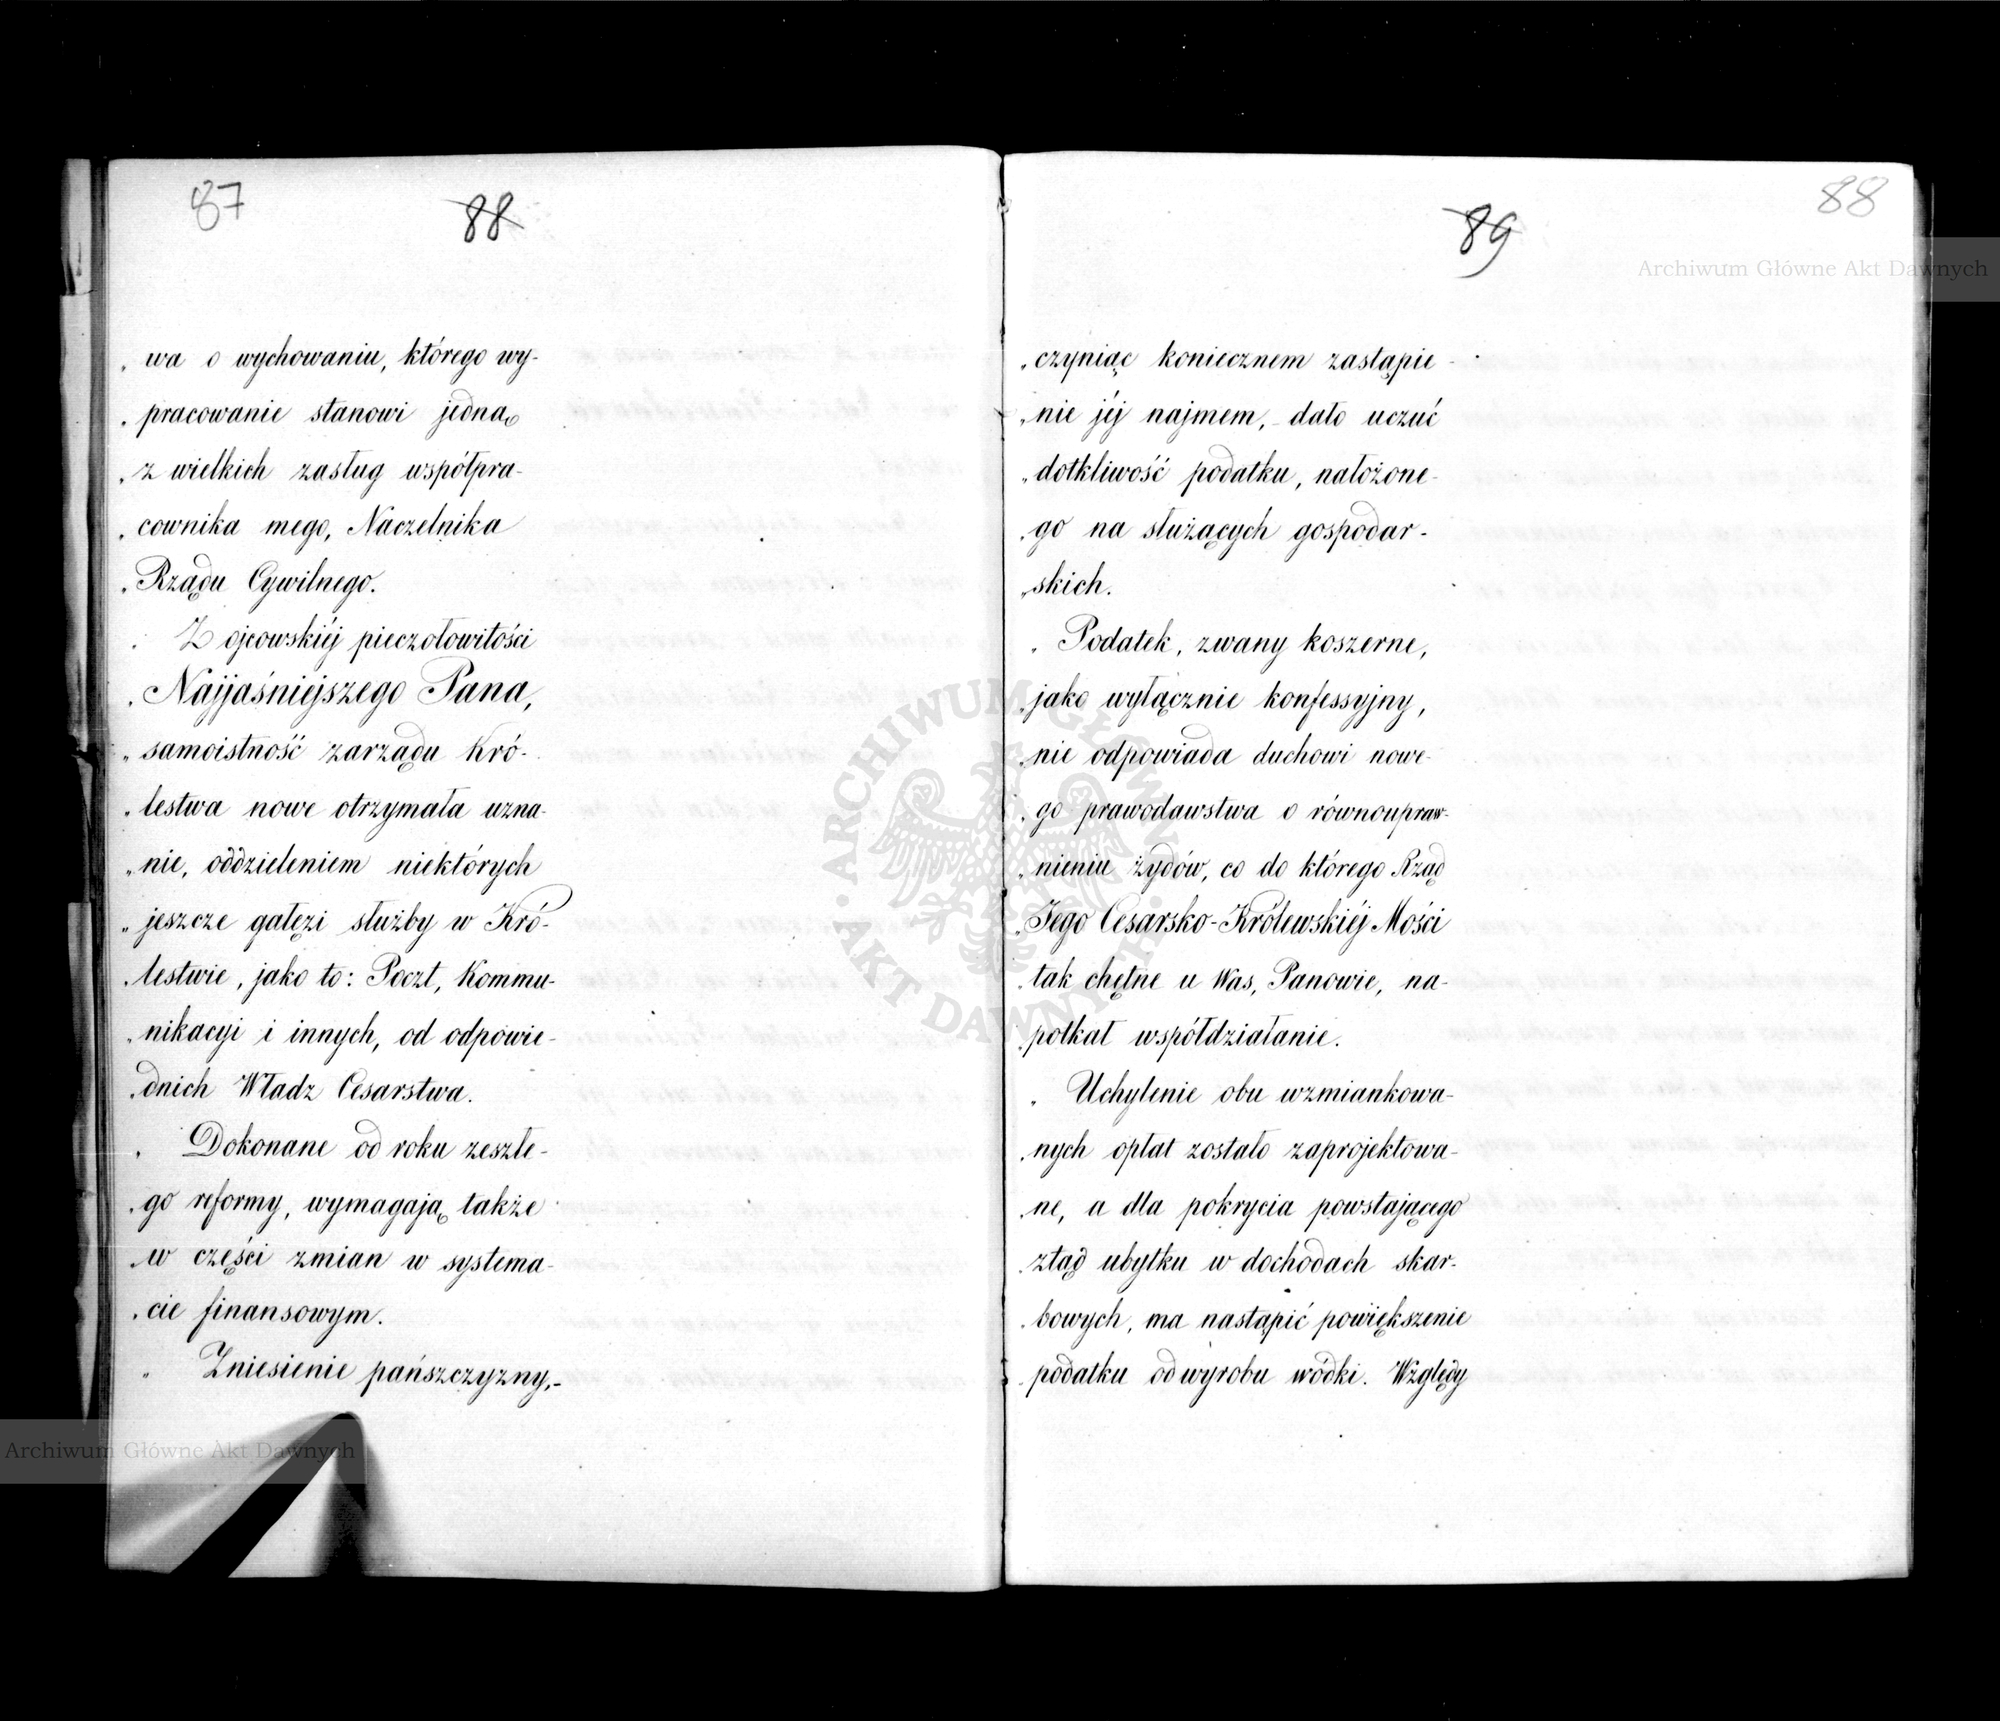 87
88
„ wa o wychowaniu, którego wy-
„ pracowanie stanowi jedną
„ z wielkich zasług współpra-
„ cownika mego, Naczelnika
„ Rządu Cywilnego.
„ Z ojcowskiéj pieczołowitości
„ Najjaśniejszego Pana,
„ samoistność zarządu Kró-
„ lestwa nowe otrzymała uzna-
„ nie, oddzieleniem niektórych
„ jeszcze gałęzi służby w Kró-
„ lestwie, jako to: Poczt, Kommu-
„ nikacyi i innych, od odpowie-
„ dnich Władz Cesarstwa.
„ Dokonane od roku zeszłe-
„ go reformy, wymagają także
„ w części zmian w systema-
„ cie finansowym.
„ Zniesienie pańszczyzny,-
88
89
„ czyniąc koniecznem zastąpie-
„ nie jéj najmem, dało uczuć
„ dotkliwość podatku, nałożone-
„ go na służących gospodar-
„ skich.
„ Podatek, zwany koszerne,
„ jako wyłącznie konfessyjny,
„ nie odpowiada duchowi nowe-
„ go prawodawstwa o równoupraw-
„ nieniu żydów, co do którego Rząd
„ Jego Cesarsko-Królewskiéj Mości
„ tak chętne u Was, Panowie, na-
„ potkał współdziałanie.
„ Uchylenie obu wzmiankowa-
„ nych opłat zostało zaprojektowa-
„ ne, a dla pokrycia powstającego
„ ztąd ubytku w dochodach skar-
„ bowych, ma nastąpić powiększenie
„ podatku od wyrobu wódki. Względy
Archiwum Główne Akt Dawnych
ARCHIWUM GŁÓWNE
AKT DAWNYCH
Archiwum Główne Akt Dawnych